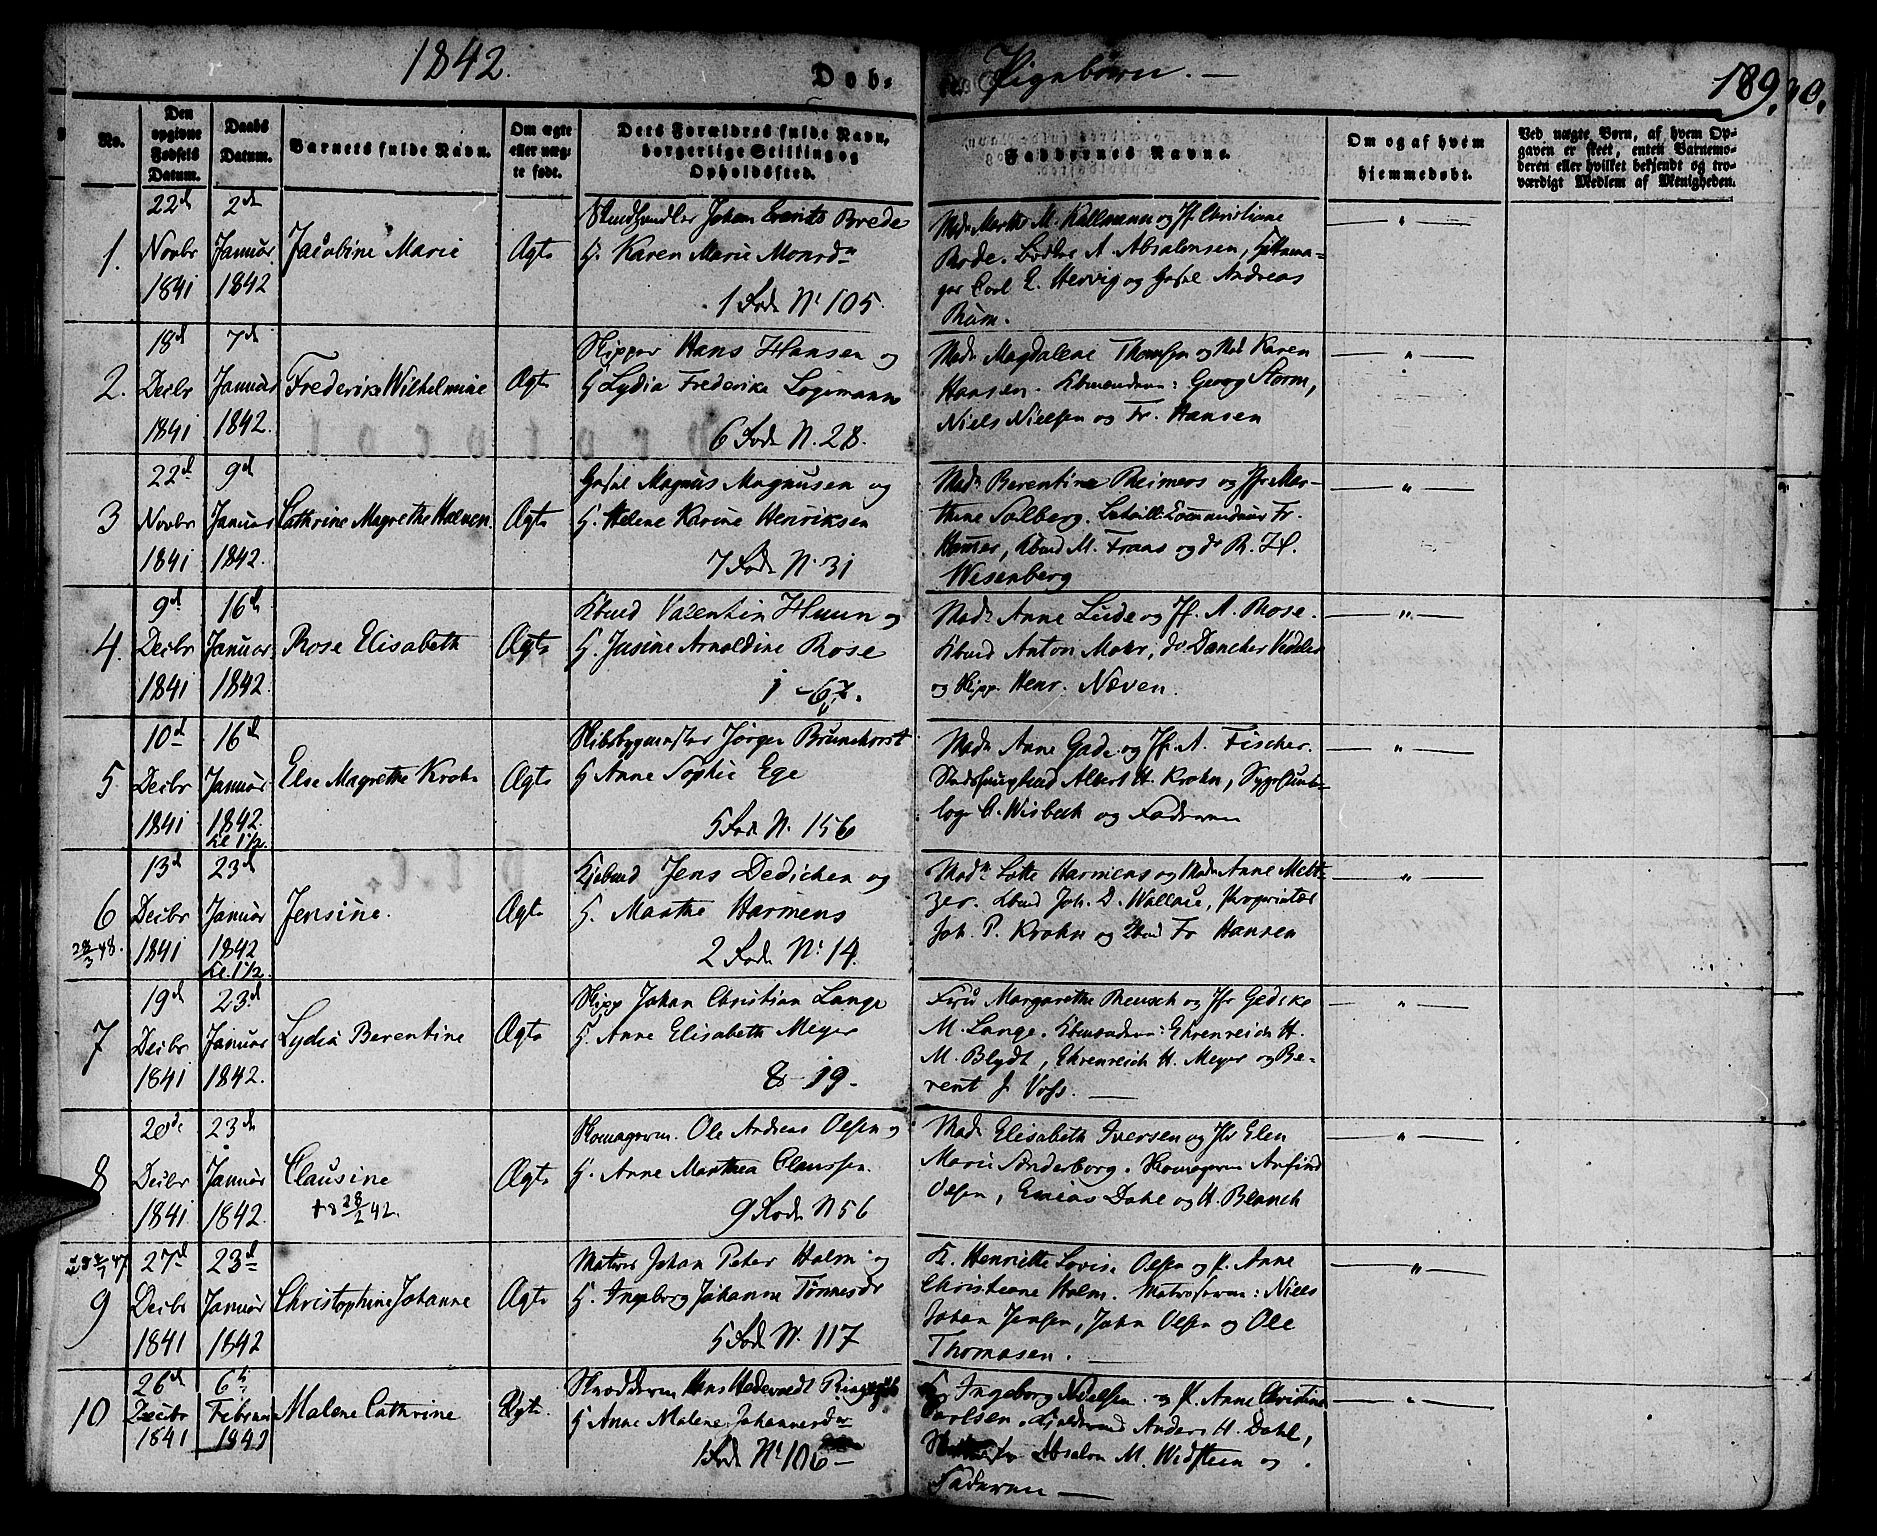 1842.
Dob-
Pigebörn. —
189.
No.
Den opgivne Fødsels Datum.
Daabs Datum.
Barnets fulde Navn.
Om ægte eller uægte født.
Dets Forældres fulde Navn, borgerlige Stilling og Opholdssted.
Faddernes Navne.
Om og af hvem hjemmedøbt.
Ved uægte Børn, af hvem Opgaven er skeet, enten Barnemoderen eller hvilket bekjendt og troværdigt Medlem af Menigheden.
1.
22d Novbr 1841
2de Januar 1842
Jacobine Marie
Ægte
Johan Brede
H. Karen Marie Monrdn
1 Fode N: 105.
Mad: Marthe M. Kallmann og Jfr Christiane
Rode. A. Absalonsen,
Carl E. Hervig og Andreas
2.
18d Decbr 1841
7de Januar 1842.
Frederike Wilhelmine
Ægte
Skipper Hans Hansen og
H Lydia Frederike Logemann
6 Fode N. 28.
Mad: Magdalene Thomsen og Mad Karen
Hansen. Kbmændene: Georg Storm,
Niels Nielsen og Fr. Hansen
3
22d Novbr 1841
9d Januar 1842.
Cathrine Magrethe
Ægte
Magnus Magnusen og
H. Helene Karine Henriksen
7 Fode N. 31
Mad: Berentine Reimers og Jfr Mar-
thine Solberg. Fr.
M. Frans og do R. H.
Wesenberg
4.
9d Decbr 1841
16de Januar 1842.
Rose Elisabeth
Ægte
Kbmd Valentin Huun og
H. Jasine Arnoldine Rose
1 - 67.
Mad: Anne Lude og Jf. A. Rose.
Kbmd Anton Mohr, do Dancker Vedeler
og Skipp. Henr. Næven.
5
10d Decbr 1841
16d Januar 1842.
Else Magrethe Krohn
Ægte
Skibsbygmester Jørgen Brunchorst
H Anne Sophie Ege
5 Fode N. 156
Mad: Anne Gade og Jfr. A. Fischer.
Albert H. Krohn,
C. Wisbech og Faderen
6
13d Decbr 1841
Kl. 1½
23d Januar 1842
Jensine.
Ægte
Kjøbmd Jens Dedichen og
H. Marthe Harmens
2 Fode N: 14.
Madn: Lotte Harmens og Mad: Anne Melt-
zer. Kbmd Joh. D. Wallace, Proprietær
Joh. P. Krohn og Kbmd Fr Hansen
7
19d Decbr 1841
Kl. 1½.
23d Januar 1842.
Lydia Berentine
Ægte
Skipp Johan Christian Lange
H. Anne Elisabeth Meyer
8 - 19.
Fru Margarethe Reusch og Jfr Gedske
M. Lange. Kbmændene: Ehrenreich H.
M. Blydt, Ehrenreich H. Meyer og Be-
rent J. Voss.
8
20de Decbr 1841
23de Januar 1842.
Clausine
† 28/2 42.
Ægte
Skomagerm. Ole Andreas Olsen og
H. Anne Marthea Claussen.
9 Fode N 56
Mad: Elisabeth Iversen og Jfr Elen
Marie Sønderborg. Skomagerm Anfind
Olsen, Enevas Dahl og H. Blanch
9
27d Decbr 1841
23d Januar 1842
Christophine Johanne
Ægte
Matros Johan Peter Holm og
H. Ingeborg Johanne Tønnesdr
5 Fode N. 117
K. Henriette Lovise Olsen og P. Anne
Christiane Holm. Matroserne: Niels
Johan Jensen, John Olsen og Ole
Thomasen.
10
26d Decbr 1841
6te Februar 1842
Malene Cathrine
Ægte.
Skrædderm Hans
H Anne Malene Johannesdr
1 Fode N: 106 —
K. Ingeborg Nielsen og P. Anne Christine
Carlsen. Anders H. Dahl,
Absalon M. Widsteen og
Faderen —